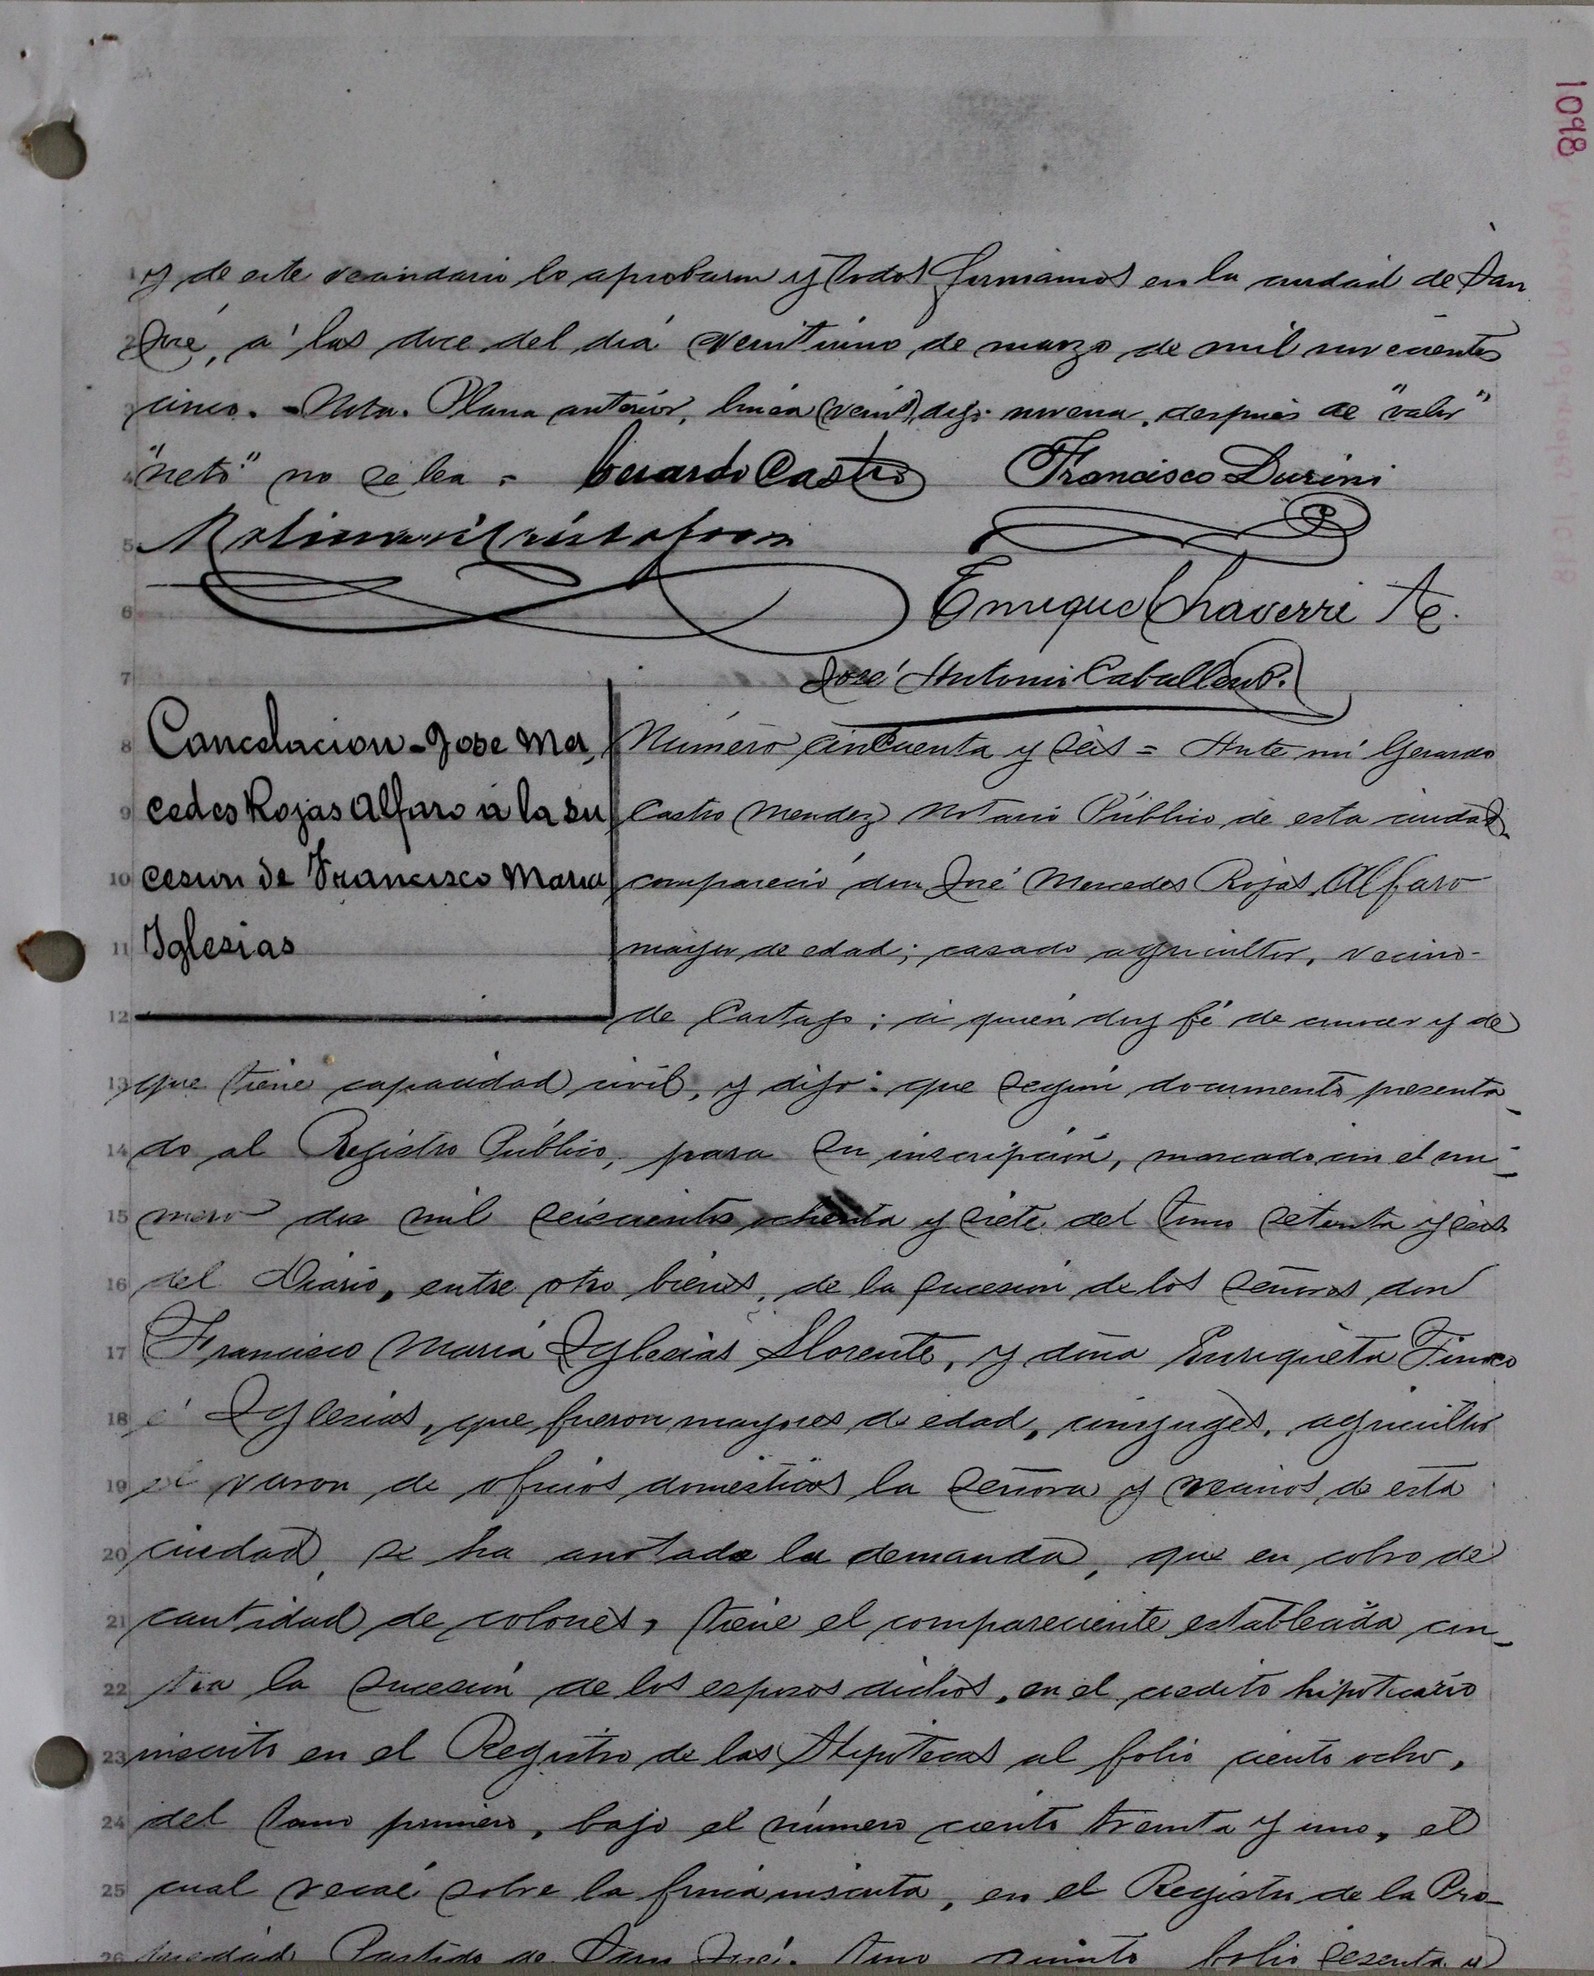 1098
1 y de este vecindario lo aprobaron y todos firmamos en la ciudad de San
2 José, á las doce del día veintiuno de marzo de mil novecientos
3 cinco. - Nota. Plana anterior, línea (veint) digo novena, después de "valor"
4 "neto" no se lea = Gerardo Castro Francisco Durini
5
6 Enrique Chaverri A.
7 José Antonio Caballero P.
8 Cancelacion - Jose Mer,
9 cedes Rojas Alfaro a la su
10 cesion de Francisco Maria
11 Iglesias
Número cincuenta y seis = Ante mi Gerardo
Castro Mendez Notario Público de esta ciudad
compareció don José Mercedes Rojas Alfaro
mayor de edad; casado agricultor, vecino
12 de Cartago; á quien doy fé de conocer y de
13 que tiene capacidad civil, y dijo: que según documento presenta-
14 do al Registro Público, para su inscripción, marcado con el nú-
15 mero dos mil seiscientos ochenta y siete del tomo setenta y seis
16 del Diario, entre otro bienes, de la sucesión de los señores don
17 Francisco María Iglesias Llorente, y doña Enriqueta Tinoco
18 é Iglesias, que fueron mayores de edad, cónyuges, agricultor
19 el varon de oficios domésticos la señora y vecinos de esta
20 ciudad, se ha anotado la demanda, que en cobro de
21 cantidad de colones, tiene el compareciente establecida con-
22 tra la sucesión de los esposos dichos, en el credito hipotecario
23 inscrito en el Registro de las Hipotecas al folio ciento ocho,
24 del tomo primero, bajo el número ciento treinta y uno, el
25 cual recaé sobre la finca inscrita, en el Registro de la Pro-
26 piedad Partido de San José, tomo folio sesenta y